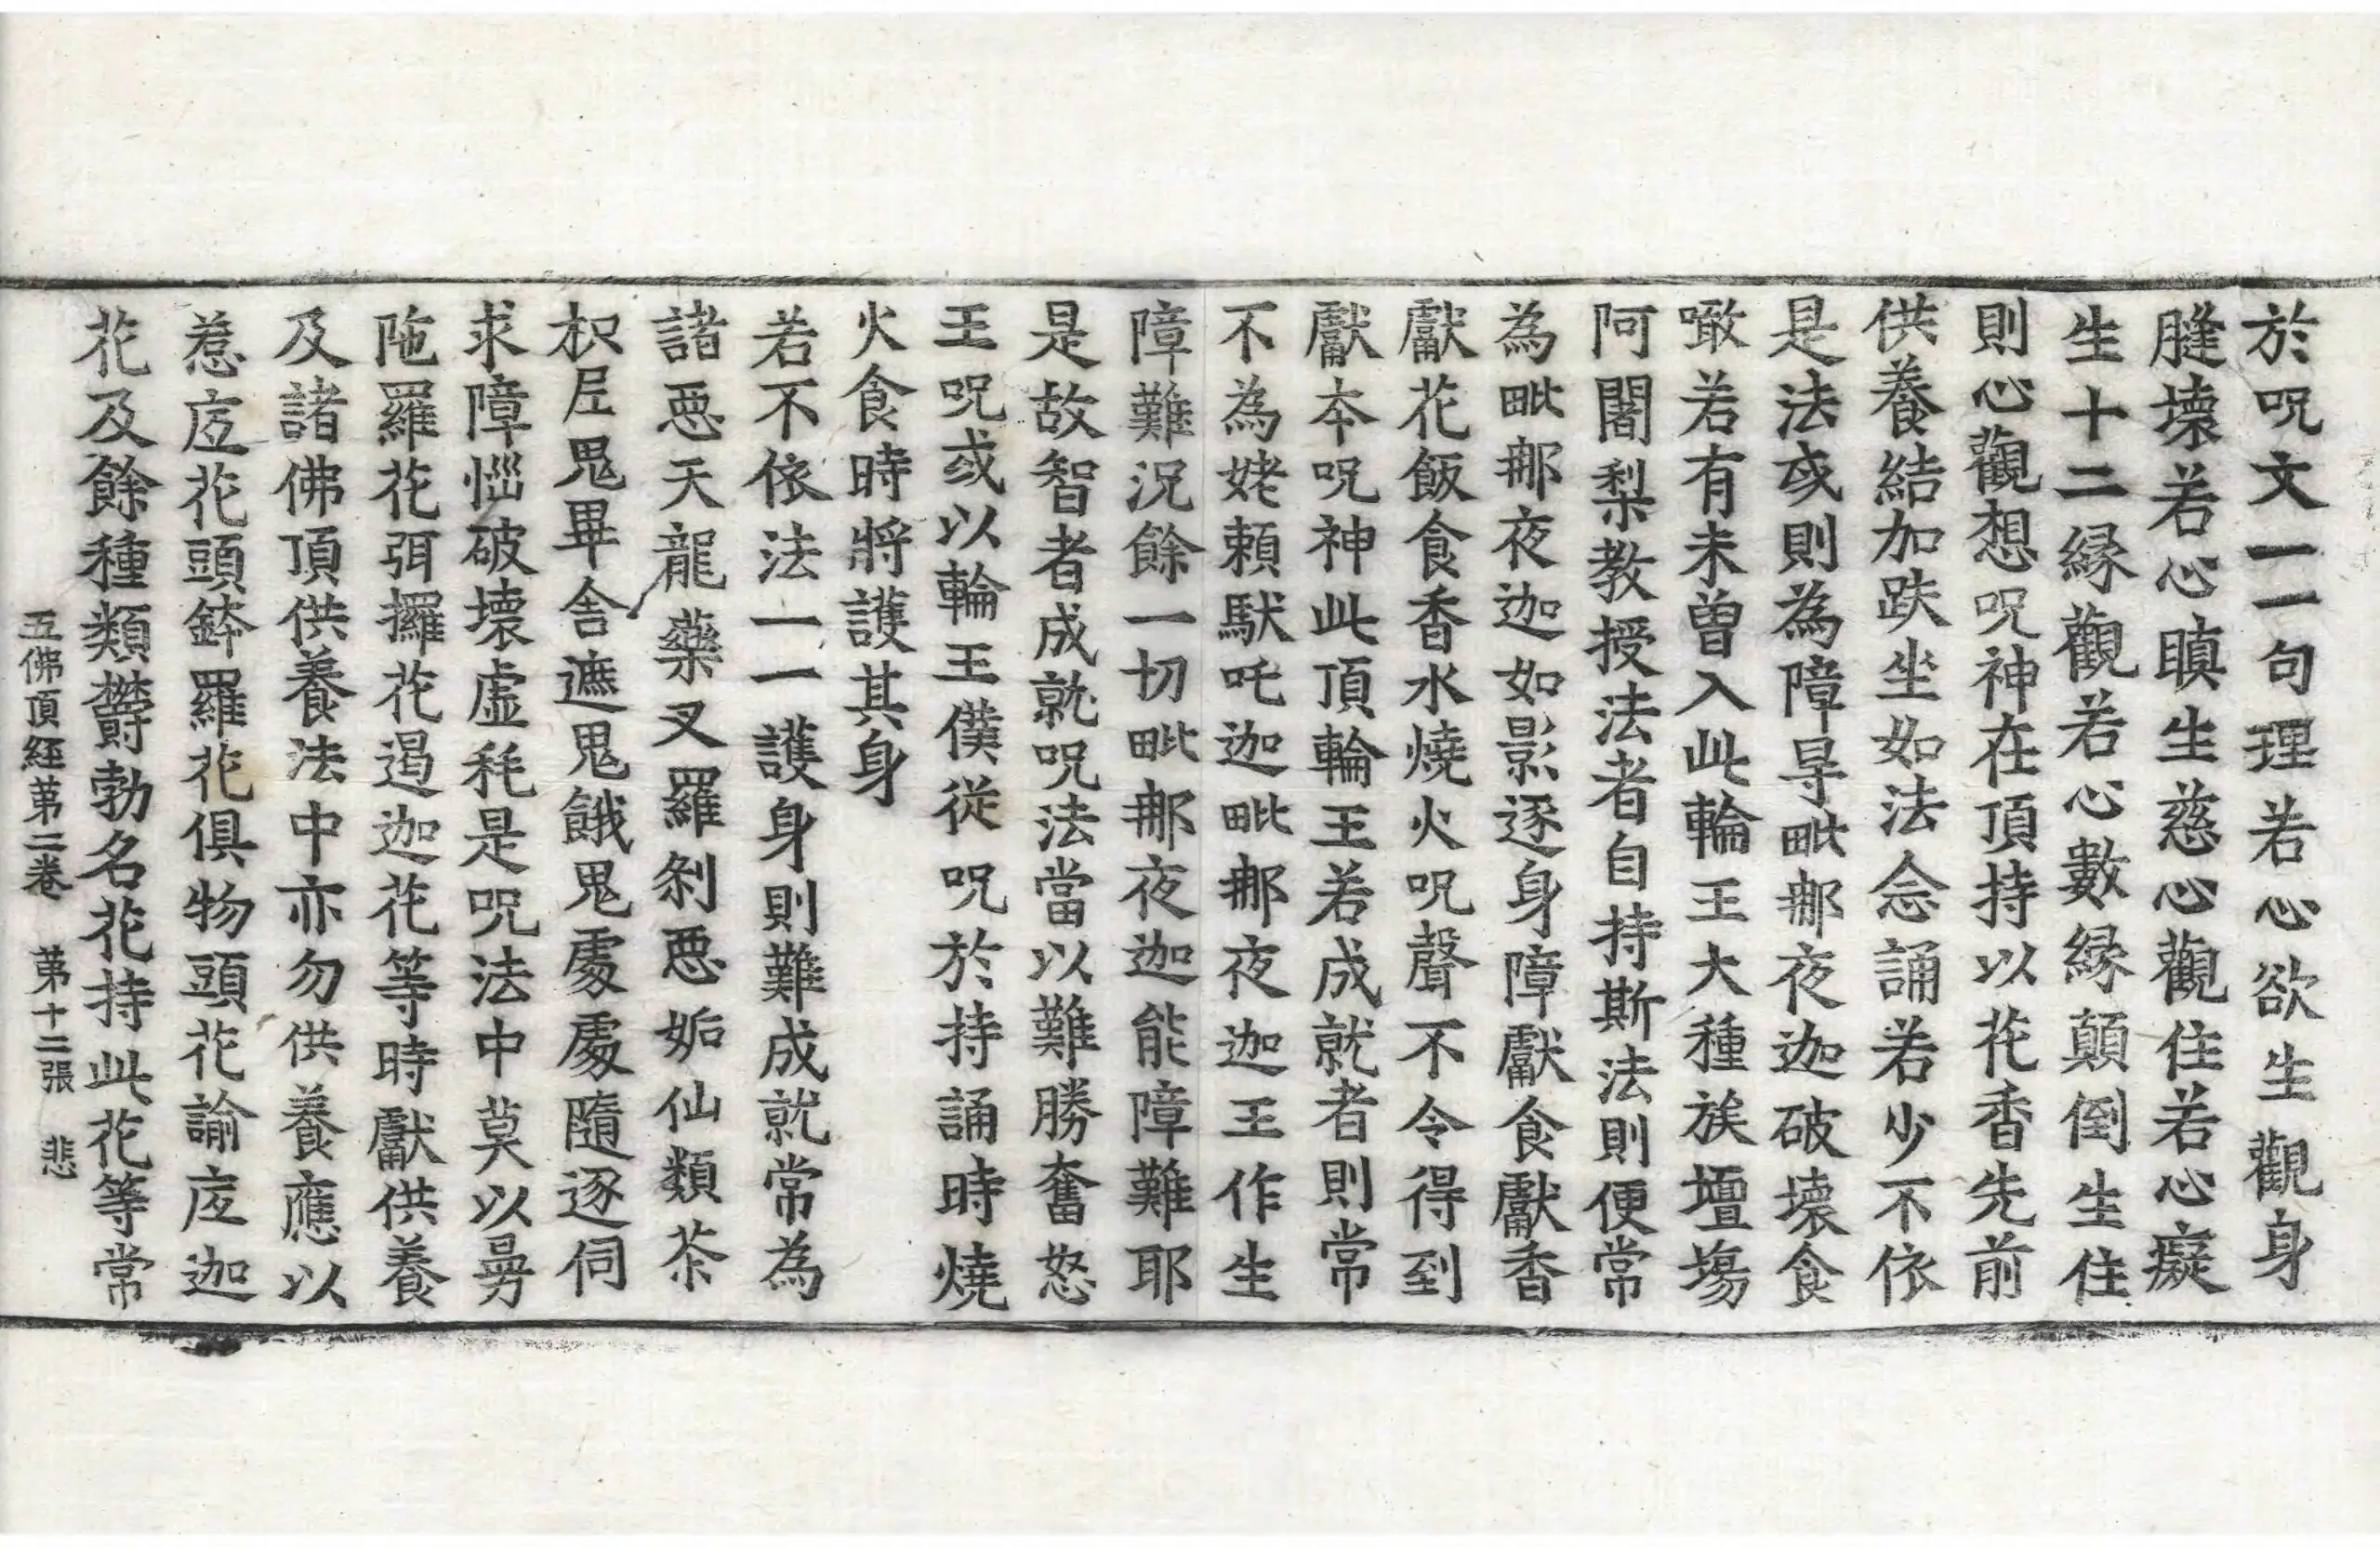 於呪文一一句理若心欲生觀身
膖壞若心瞋生慈心觀住若心癡
生十二緣觀若心數緣顛倒生住
則心觀想呪神在頂持以花香先前
供養結加趺坐如法念誦若少不依
是法或則為障㝵毗那夜迦破壞食
噉若有未曾入此輪王大種族壇場
阿闍梨教授法者自持斯法則便常
為毗那夜迦如影逐身障獻食獻香
獻花飯食香水燒火呪聲不令得到
獻本呪神此頂輪王若成就者則常
不為姥賴馱吒迦毗那夜迦王作生
障難況餘一切毗那夜迦能障難耶
是故智者成就呪法當以難勝奮怒
王呪或以輪王僕從呪於持誦時燒
火食時將護其身
若不依法一一護身則難成就常為
諸惡天龍藥叉羅剎惡姤仙類茶
枳尼鬼畢舍遮鬼餓鬼處處隨逐伺
求障惱破壞虛秏是呪法中莫以曼
陁羅花弭攞花遏迦花等時獻供養
及諸佛頂供養法中亦勿供養應以
惹底花頭鉢羅花俱物頭花諭底迦
花及餘種類欝勃名花持此花等常
五佛頂經第二卷　第十二張　悲